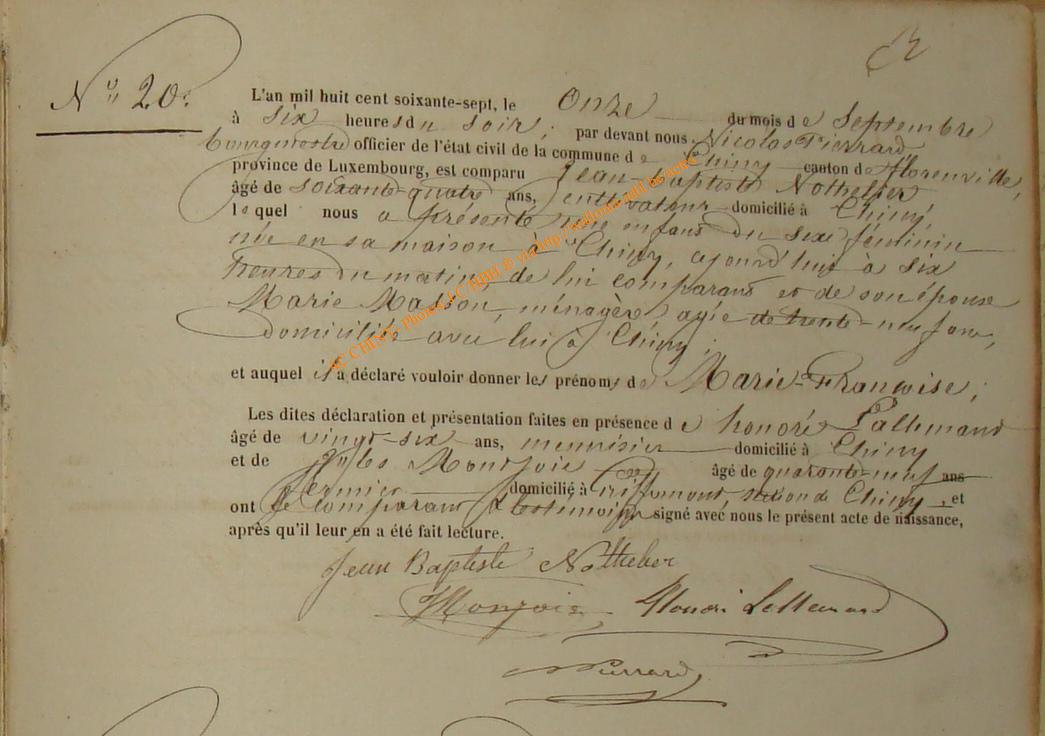 N° 20.
L'an mil huit cent soixante-sept, le Onze du mois de Septembre
à six heures du soir, par devant nous Nicolas Pierrard
bourgmestre officier de l'état civil de la commune de Chiny canton de Florenville,
province de Luxembourg, est comparu Jean-Baptiste Nothelier
âgé de soixante-quatre ans, cultivateur domicilié à Chiny,
lequel nous a présenté une enfant du sexe féminin
née en sa maison à Chiny, ajourd'huis à six
heures du matin, de lui comparant et de son épouse
Marie Masson, ménagère, agée de trente-neuf ans,
domiciliée avec lui à Chiny;
et auquel il a déclaré vouloir donner les prénoms de Marie-Françoise;
Les dites déclaration et présentation faites en présence de honoré Lallemand
âgé de vingt-six ans, menuisier domicilié à Chiny
et de Jules Montjoie âgé de quarante-neuf ans
fermier domicilié à Chiny, et
ont le comparant & les témoins signé avec nous le présent acte de naissance,
après qu'il leur en a été fait lecture.
Jean Baptiste
JMonjoie Honoré Lallemand
NPierrard
AC CHINY. Photos LC HBH © via http://